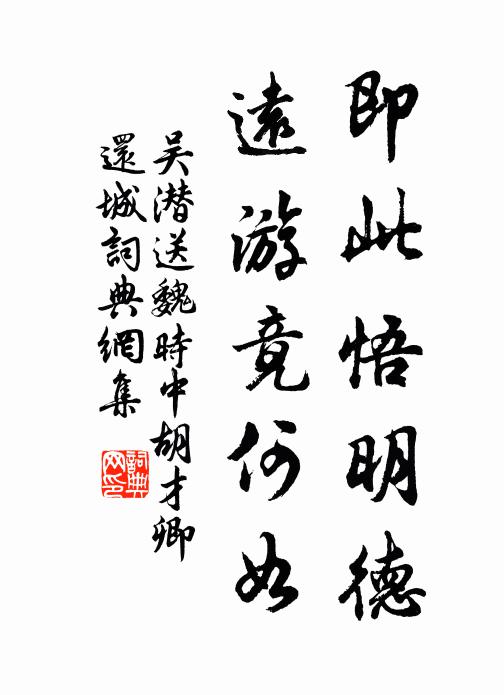 即此悟明德
遠游竟何如
吴潜送魏時中胡才卿
還城詞典網集
詞典網印